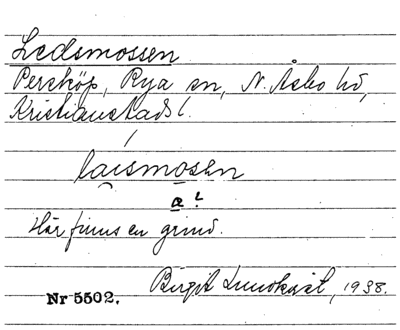 Ledsmossen
Perstköp, Rya sn, N. Åsbo hd,
Kristianstads l.
laismosen
a ?
Här finns en grind.
Birgit Lundkvist, 1938.
Nr 5502.